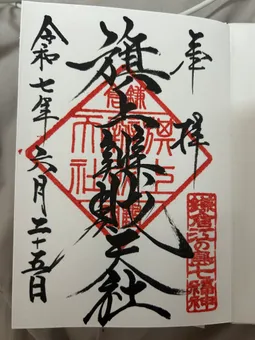 奉拝
旗上辨財天社
令和七年六月二十五日
鎌倉
鎌倉江の島七